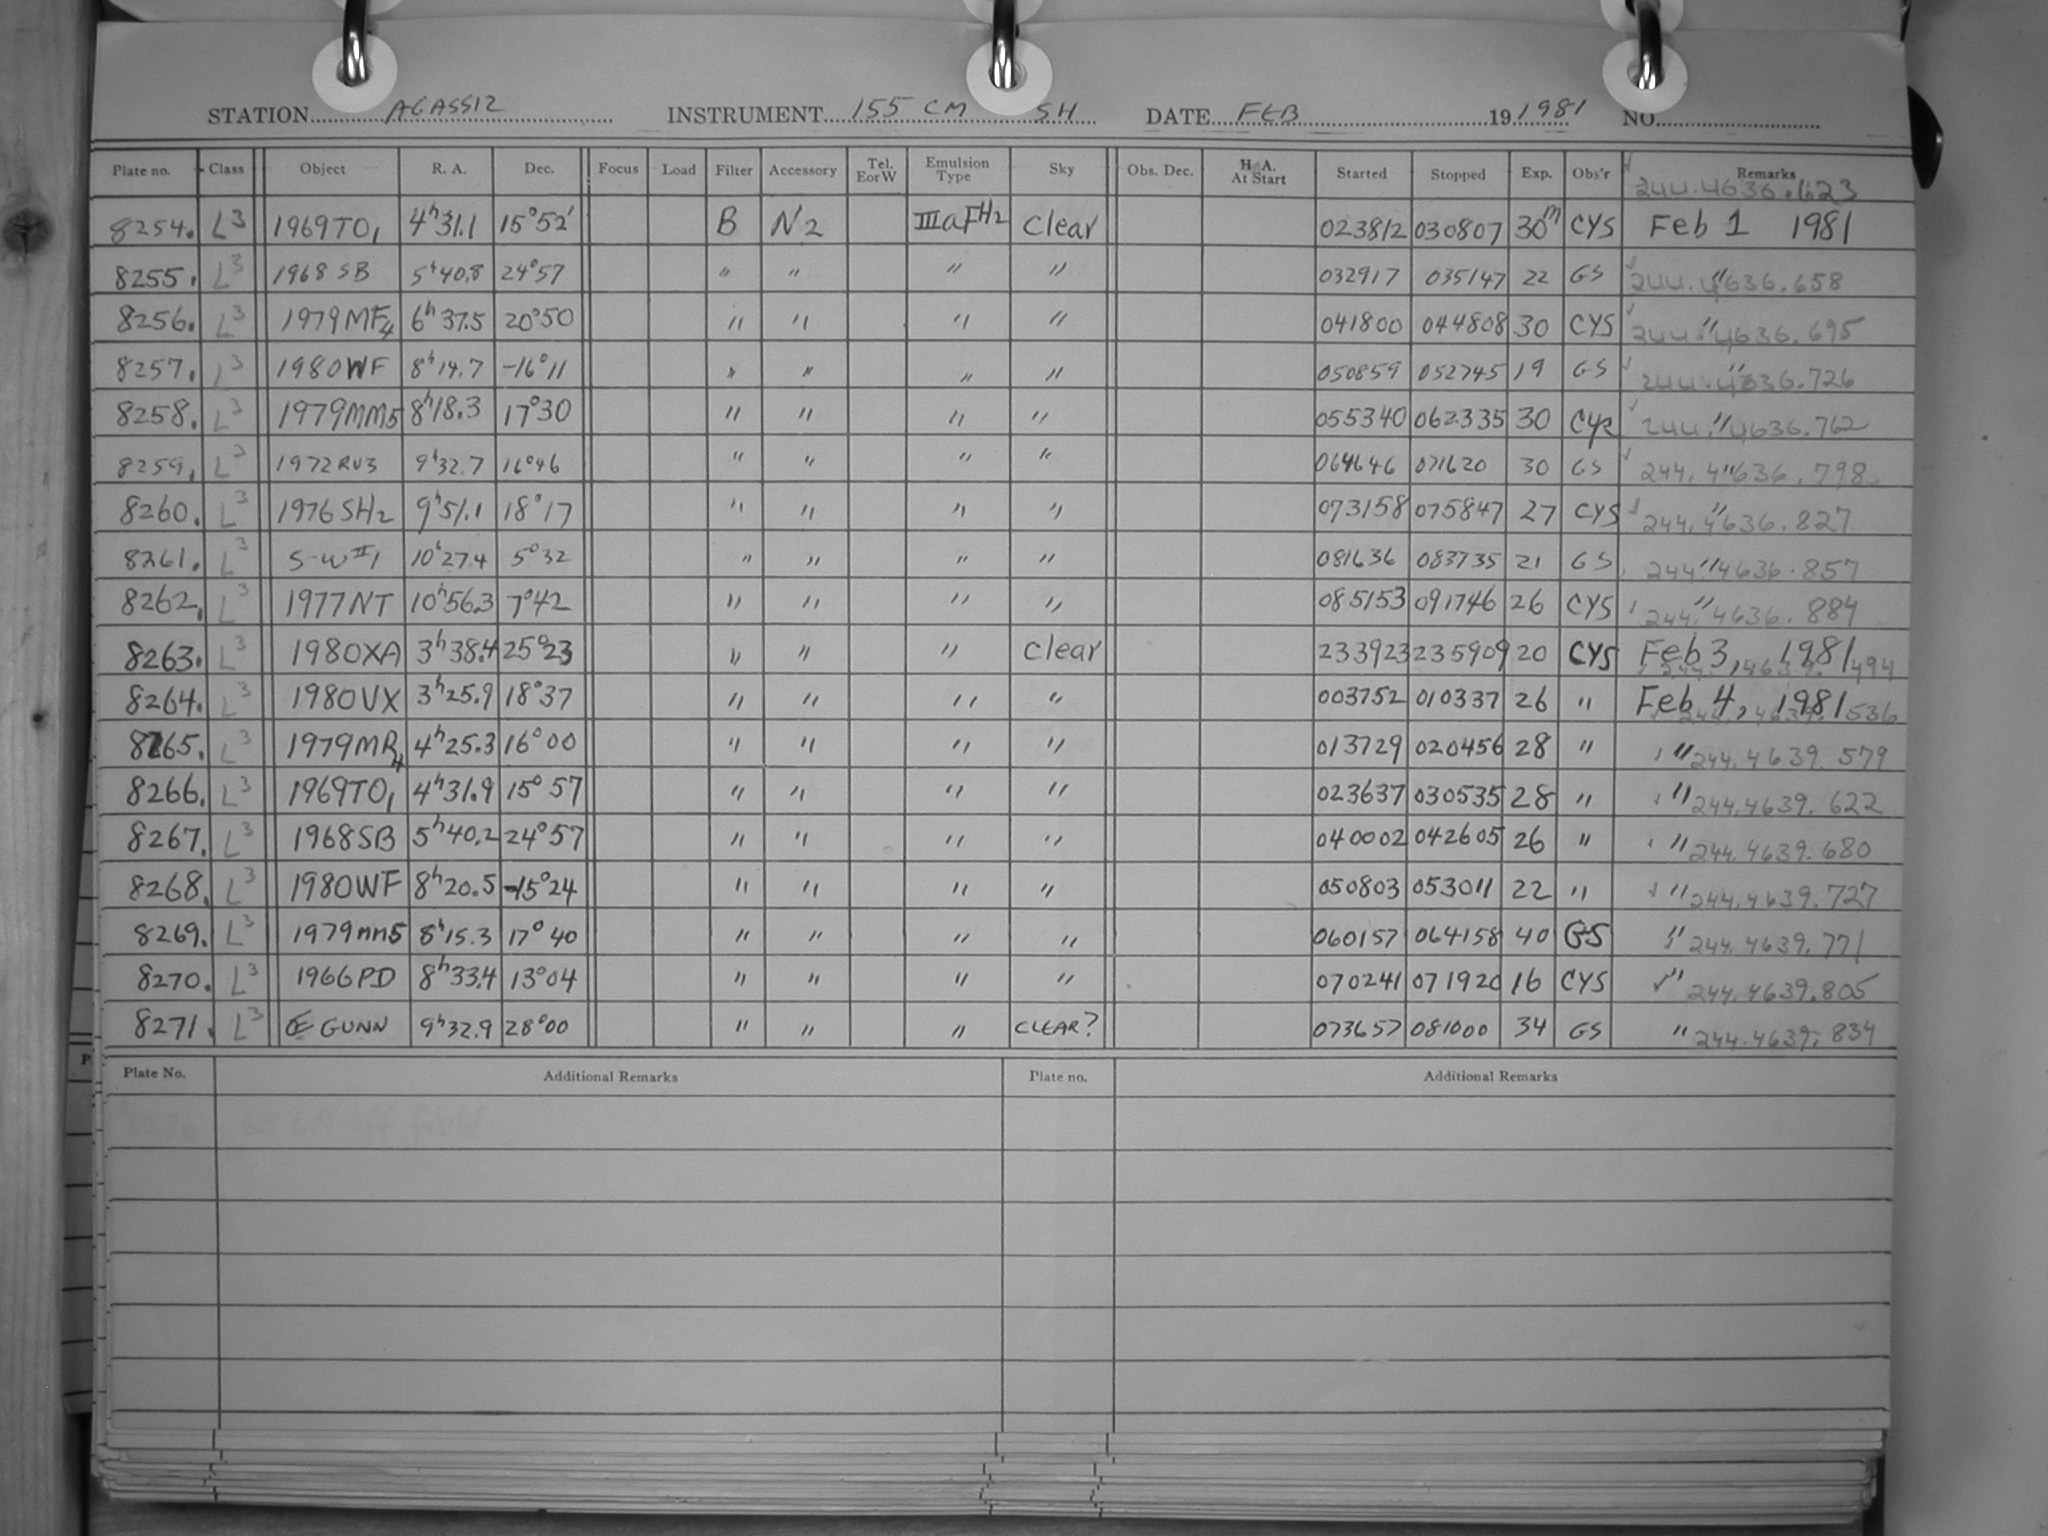 STATION AGASSIZ INSTRUMENT 155 CM SH DATE FEB 19 1981 NO.
Plate no. Class Object R. A. Dec. Focus Load Filter Accessory Tel. E or W Emulsion Type Sky Obs. Dec. H. A. At Start Started Stopped Exp. Obs'r Remarks
244.4636.623
8254. L3 1969TO1 4h31.1 15°52' B N2 IIIaFH2 Clear 023812 030807 30m CYS Feb 1 1981
8255. L3 1968 SB 5h40.8 24°57 " " " " 032917 035147 22 GS " 244.4636.658
8256. L3 1979MF4 6h37.5 20°50 " " " " 041800 044808 30 CYS " 244.4636.695
8257. L3 1980WF 8h14.7 -16°11 " " " " 050859 052745 19 GS " 244.4636.726
8258. L3 1979MM5 8h18.3 17°30 " " " " 055340 062335 30 CYS " 244.4636.762
8259. L3 1972RU3 9h32.7 16°46 " " " " 064646 071620 30 GS " 244.4636.798
8260. L3 1976SH2 9h51.1 18°17 " " " " 073158 075847 27 CYS " 244.4636.827
8261. L3 S-W 1 10h27.4 5°32 " " " " 081636 083735 21 GS " 244.4636.857
8262. L3 1977NT 10h56.3 7°42 " " " " 085153 091746 26 CYS " 244.4636.884
8263. L3 1980XA 3h38.4 25°23 " " " Clear 233923 235909 20 CYS Feb 3, 1981 244.4639.494
8264. L3 1980VX 3h25.9 18°37 " " " " 003752 010337 26 " Feb 4, 1981 244.4639.536
8265. L3 1979MR4 4h25.3 16°00 " " " " 013729 020456 28 " " 244.4639.579
8266. L3 1969TO1 4h31.9 15°57 " " " " 023637 030535 28 " " 244.4639.622
8267. L3 1968SB 5h40.2 24°57 " " " " 040002 042605 26 " " 244.4639.680
8268. L3 1980WF 8h20.5 -15°24 " " " " 050803 053011 22 " " 244.4639.727
8269. L3 1979MM5 8h15.3 17°40 " " " " 060157 064158 40 GS " 244.4639.771
8270. L3 1966PD 8h33.4 13°04 " " " " 070241 071920 16 CYS " 244.4639.805
8271. L3 GUNN 9h32.9 28°00 " " " CLEAR? 073657 081000 34 GS " 244.4639.834
Plate No. Additional Remarks Plate no. Additional Remarks